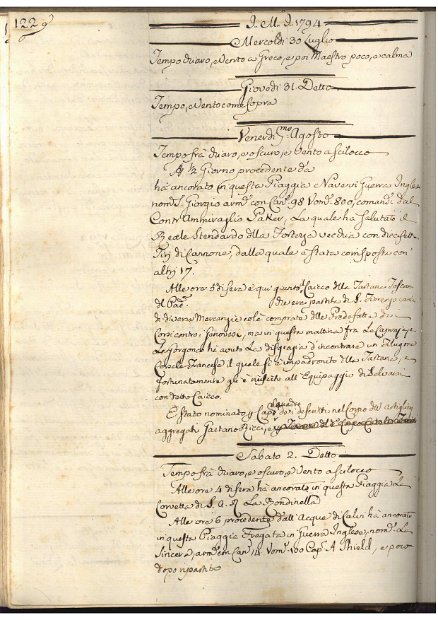 122
A. M. D. 1794
Mercoldì 30 Luglio
Tempo chiaro, e Vento a Greco, e poi Maestro poco, e calma
Giovedì 31 Detto
Tempo, e Vento come Sopra
Venerdì P.mo Agosto
Tempo frà chiaro, e oscuro, e Vento a scilocco
A ½ Giorno procedente da
hà ancorato in questa Piaggia e Nave di Guerra Inglese
nom.ta S. Giorgio arm. con Can. 98 Vom. 800, comand. dal
Contr'Ammiraglio Parker, La quale hà Salutato il
Reale Stendardo della Fortezza vecchia con diciasette
Tiri di Cannone, dalla quale è stata corrisposta con
altri 17.
Alle ore 5 di sera è qui giunto il Caicco della Tartana Toscana
del Pad.
di diverse Mercanzie
ma in questa mattina frà La Capraja, e
La Gorgona hà avuto La disgrazia d'incontrare un Filugone
Francese il quale si è impadronito della Tartana, e
fortunatamente gli è riuscito all'Equipaggio di Salvarsi
con detto Caicco.
È stato nominato p
aggregati Gaetano Ricci, e
Sabato 2. Detto
Tempo frà chiaro, e oscuro, e Vento a scilocco
Alle ore 4 di sera hà ancorato in questa Piaggia La
Corvetta di S. A. R. La Rondinella
Alle ore 6 procedente dall'Acque di Calvi hà ancorato
in questa Piaggia Fregata di Guerra Inglese, nom.ta La
Sincera, arm. con Can. Vom. 100 Cap. A Shield, e poco
dopo ripartita